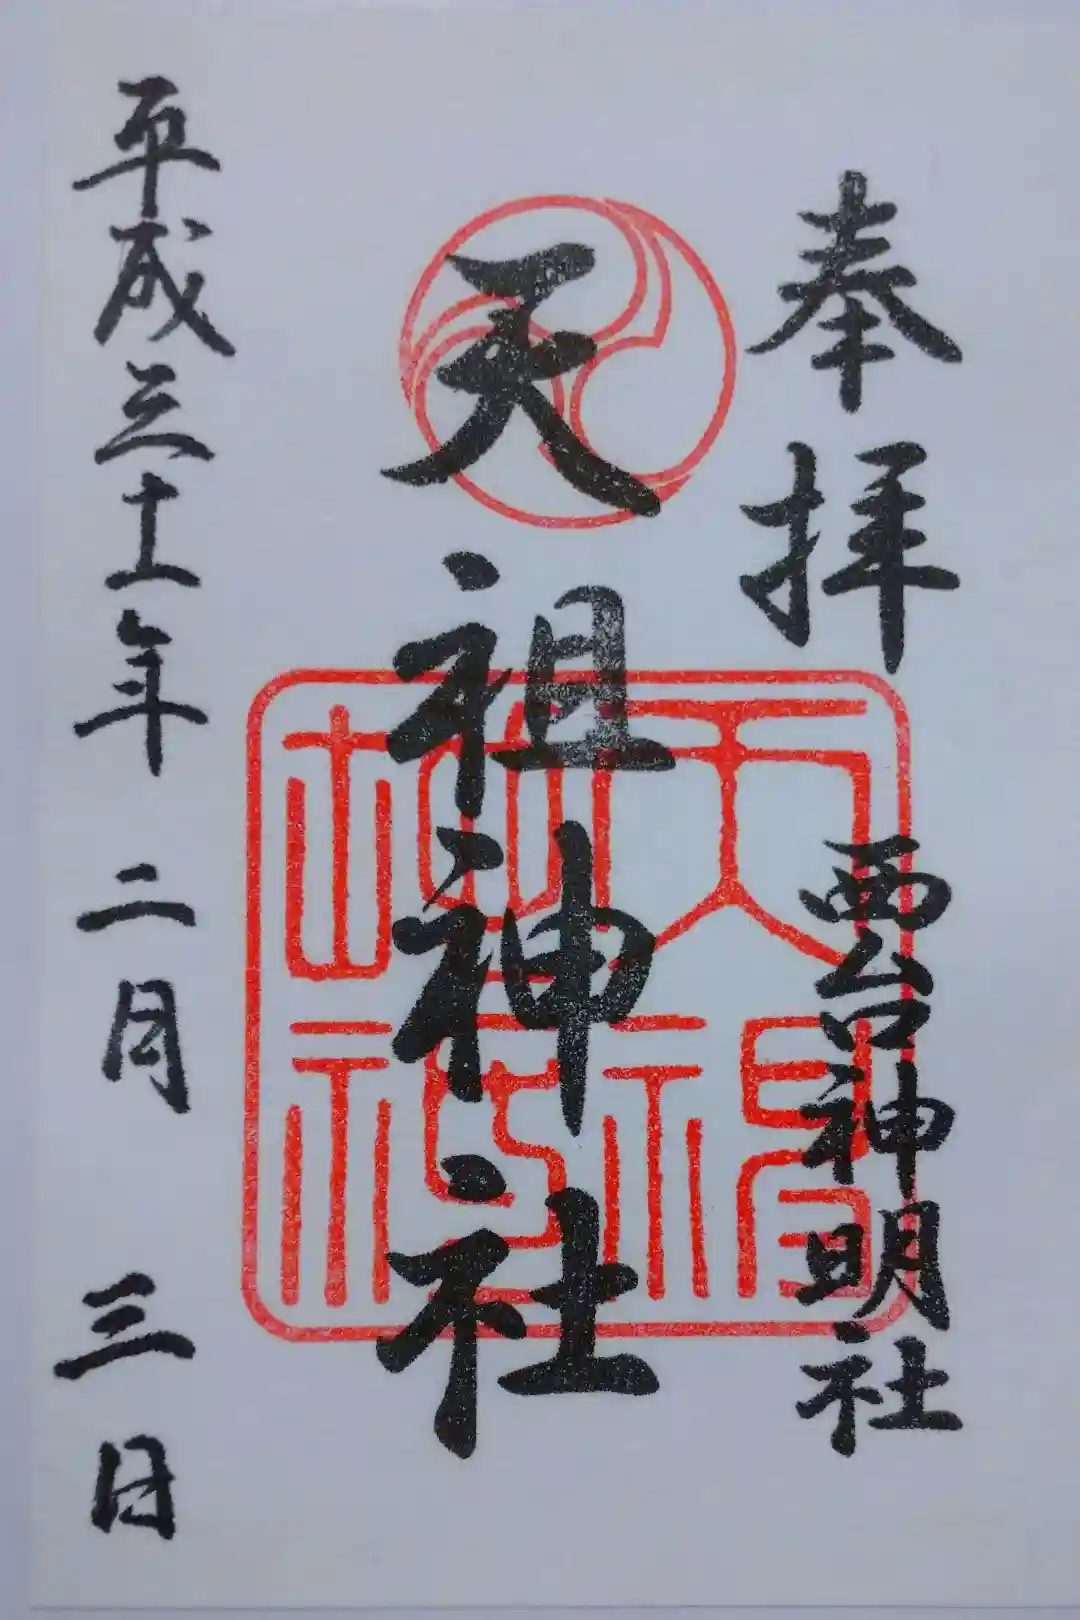 奉拝
西台神明社
天祖神社
天祖神社
平成三十一年二月三日